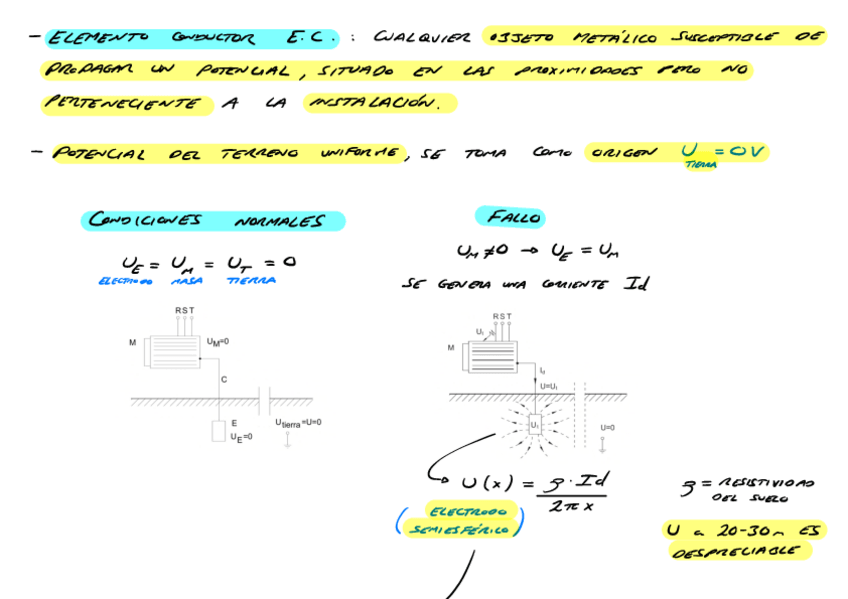 - ELEMENTO CONDUCTOR E.C. : CUALQUIER OBJETO METÁLICO SUSCEPTIBLE DE
PROPAGAR UN POTENCIAL, SITUADO EN LAS PROXIMIDADES PERO NO
PERTENECIENTE A LA INSTALACIÓN.
- POTENCIAL DEL TERRENO UNIFORME, SE TOMA COMO ORIGEN U = 0V
TIERRA
CONDICIONES NORMALES
U_E = U_M = U_T = 0
ELECTRODO MASA TIERRA
R S T
M
U_M=0
C
E
U_E=0
U_tierra=U=0
FALLO
U_M ≠ 0 → U_E = U_M
SE GENERA UNA CORRIENTE Id
R S T
U_1
M
I_d
U=U_1
U_1
U=0
U(x) = ρ · Id / 2πx
(ELECTRODO
SEMIESFÉRICO)
ρ = RESISTIVIDAD
DEL SUELO
U a 20-30m ES
DESPRECIABLE